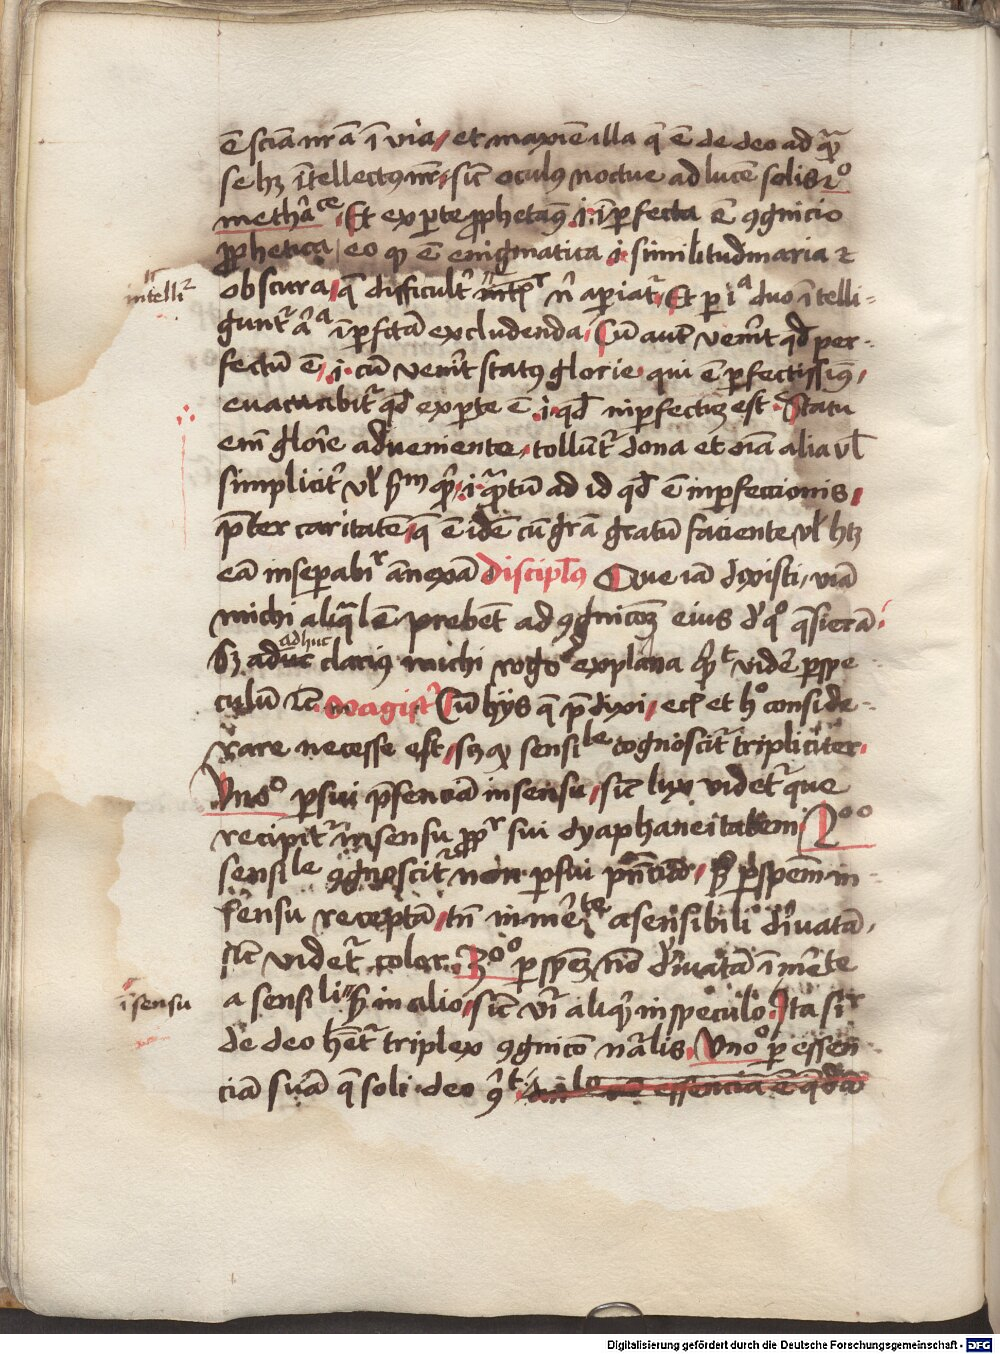 ē sciā nrā ī via et maxīe illa q̄ ē de deo ad quā
se hȝ ītellectꝰ nr̄ sic̄ oculꝰ noctue ad lucē solis 2º
methᵃce Et ex ꝑte ꝓphetamꝰ .i. īꝑfecta ē ꝯgnicio
ꝓphetica eo ꝙ ē enigmatica .i. similitudinaria ⁊
intelliᵗ
obscura q̄ difficult̓ n̄ aꝑiat᷑ Et ꝑ iᵃ duo ītelli-
gunt᷑ īꝑfctā excludenda Cū aut̄ venīt qd̄ per-
fectū ē .i. cū venīt statꝰ glorie qui ē ꝑfectissimꝰ
euacuabit᷑ qd̄ ex ꝑte ē .i. qd̄ inꝑfectū est Statu
em̄ glorie adueniente tollūt᷑ dona et oīa alia vl̄
simplicit̓ vl̓ ad id qd̄ ē inꝑfeccionis
p̄ter caritatē q̄ ē idē cū grā gratū faciente vl̓ hȝ
eā inseꝑabiᵗ ānexā disciplꝰ Que iā dixisti viā
michi aliqualē prebēt ad ꝯgnicōȝ eius d̓ qº q̄sierā
adhuc
Sȝ adhuc clariꝰ michi rogo explana vidēꝰ ꝑ spe-
culū ic̄ magist᷑ Cū hijs q̄ p̄dixi ec̄ et hº conside-
rare necesse est scȝ ꝙ sensiˡᵉ cognoscit᷑ tripliciter
Vnoº ꝑ sui p̄senciā in sensu sic̄ lux videt᷑ que
recipit᷑ in sensu ꝓpt᷑ sui dyaphaneitatem 2ºº
sensiˡᵉ ꝯgnoscit᷑ non ꝑ sui p̄nciā sȝ ꝑ spēm in
sensu receptā tn̄ inmēᵗᵉ a sensibili d̓iuatā
sic̄ videt᷑ color 3ºº ꝑ spēȝ nō d̓iuatā īmēte
ī sensu
a sensiˡⁱ sȝ in alio sic̄ vr̄ aliqd̓ in speculo Ita siʳ
de deo hēt᷑ triplex ꝯgnicō nālis Vnoº ꝑ essen
ciā suā q̄ soli deo ꝯᵗ essencia ē q̄dā
Digitalisierung gefördert durch die Deutsche Forschungsgemeinschaft - DFG